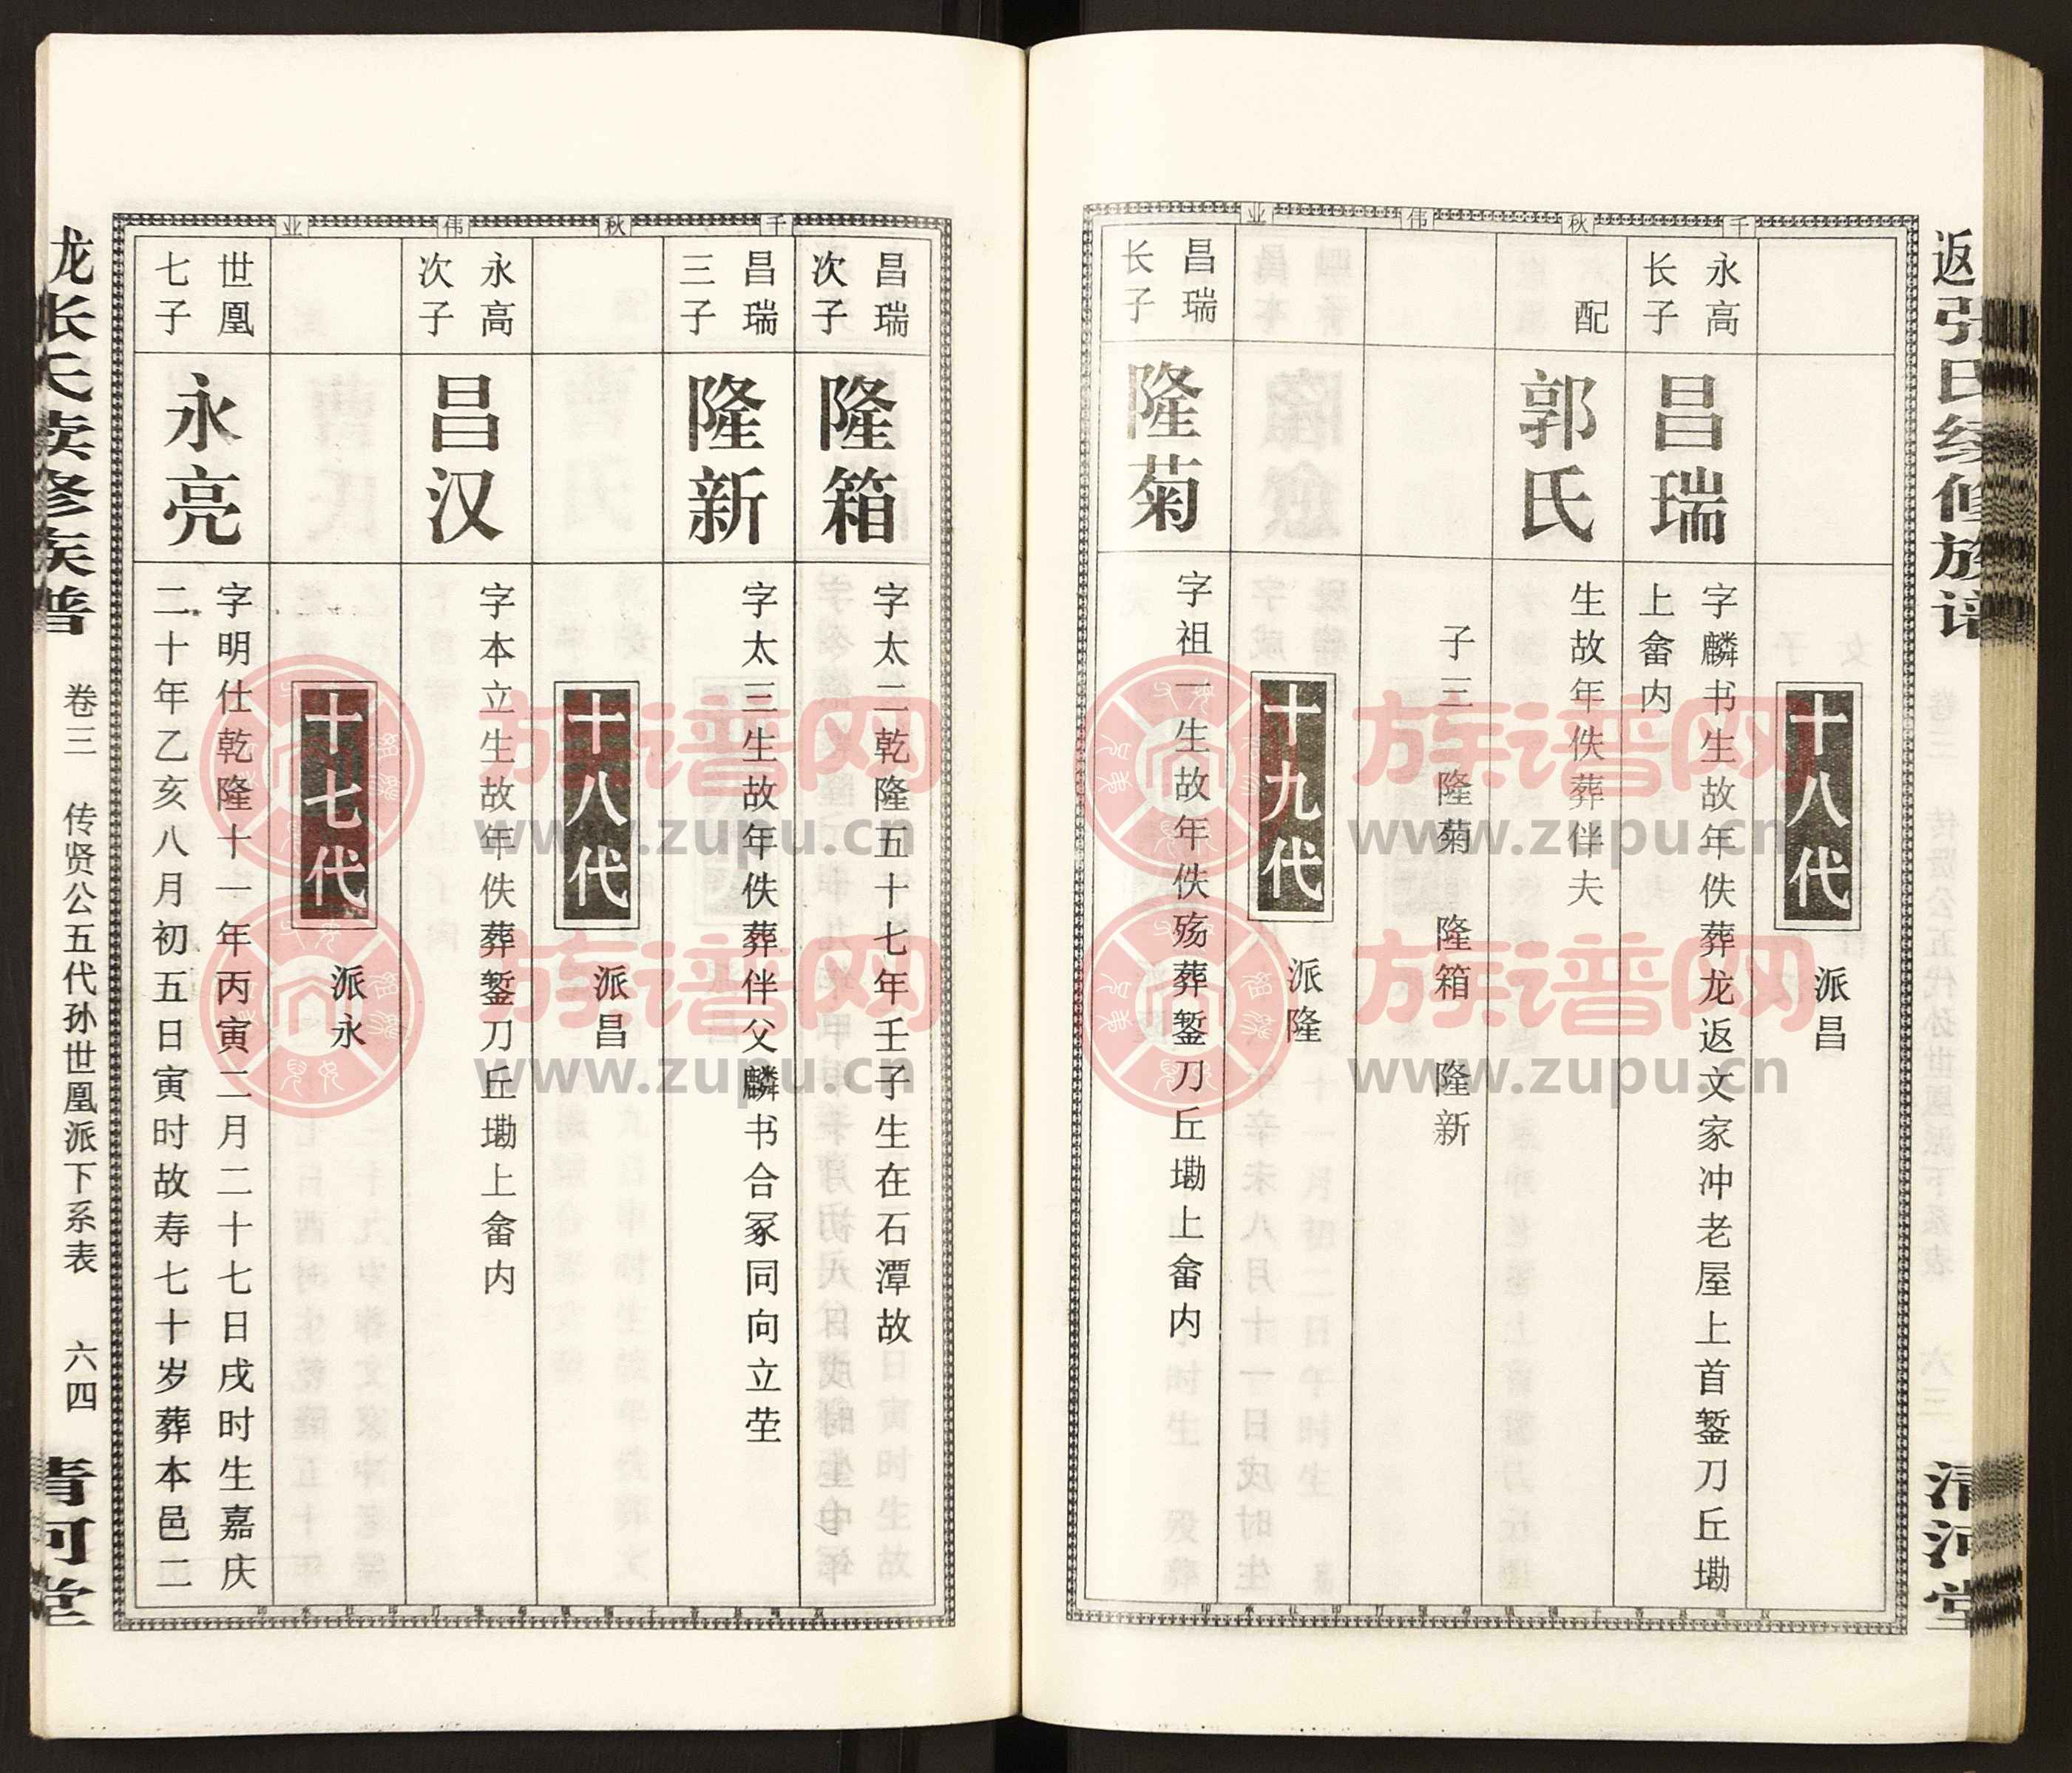 返张氏续修族谱
清河堂
千秋伟业
十八代
派昌
永高
长子
昌瑞
字麟书生故年佚葬龙返文家冲老屋上首錾刀丘墈
上畲内
配
郭氏
生故年佚葬伴夫
子三 隆菊 隆箱 隆新
十九代
派隆
昌瑞
长子
隆菊
字祖一生故年佚殇葬錾刀丘墈上畲内
千秋伟业
昌瑞
次子
隆箱
字太二乾隆五十七年壬子生在石潭故
昌瑞
三子
隆新
字太三生故年佚葬伴父麟书合冢同向立茔
十八代
派昌
永高
次子
昌汉
字本立生故年佚葬錾刀丘墈上畲内
十七代
派永
世凰
七子
永亮
字明仕乾隆十一年丙寅二月二十七日戌时生嘉庆
二十年乙亥八月初五日寅时故寿七十岁葬本邑二
龙张氏续修族谱
卷三
传贤公五代孙世凰派下系表
六四
清河堂
族谱网
www.zupu.cn
族谱网
www.zupu.cn
族谱网
www.zupu.cn
族谱网
www.zupu.cn